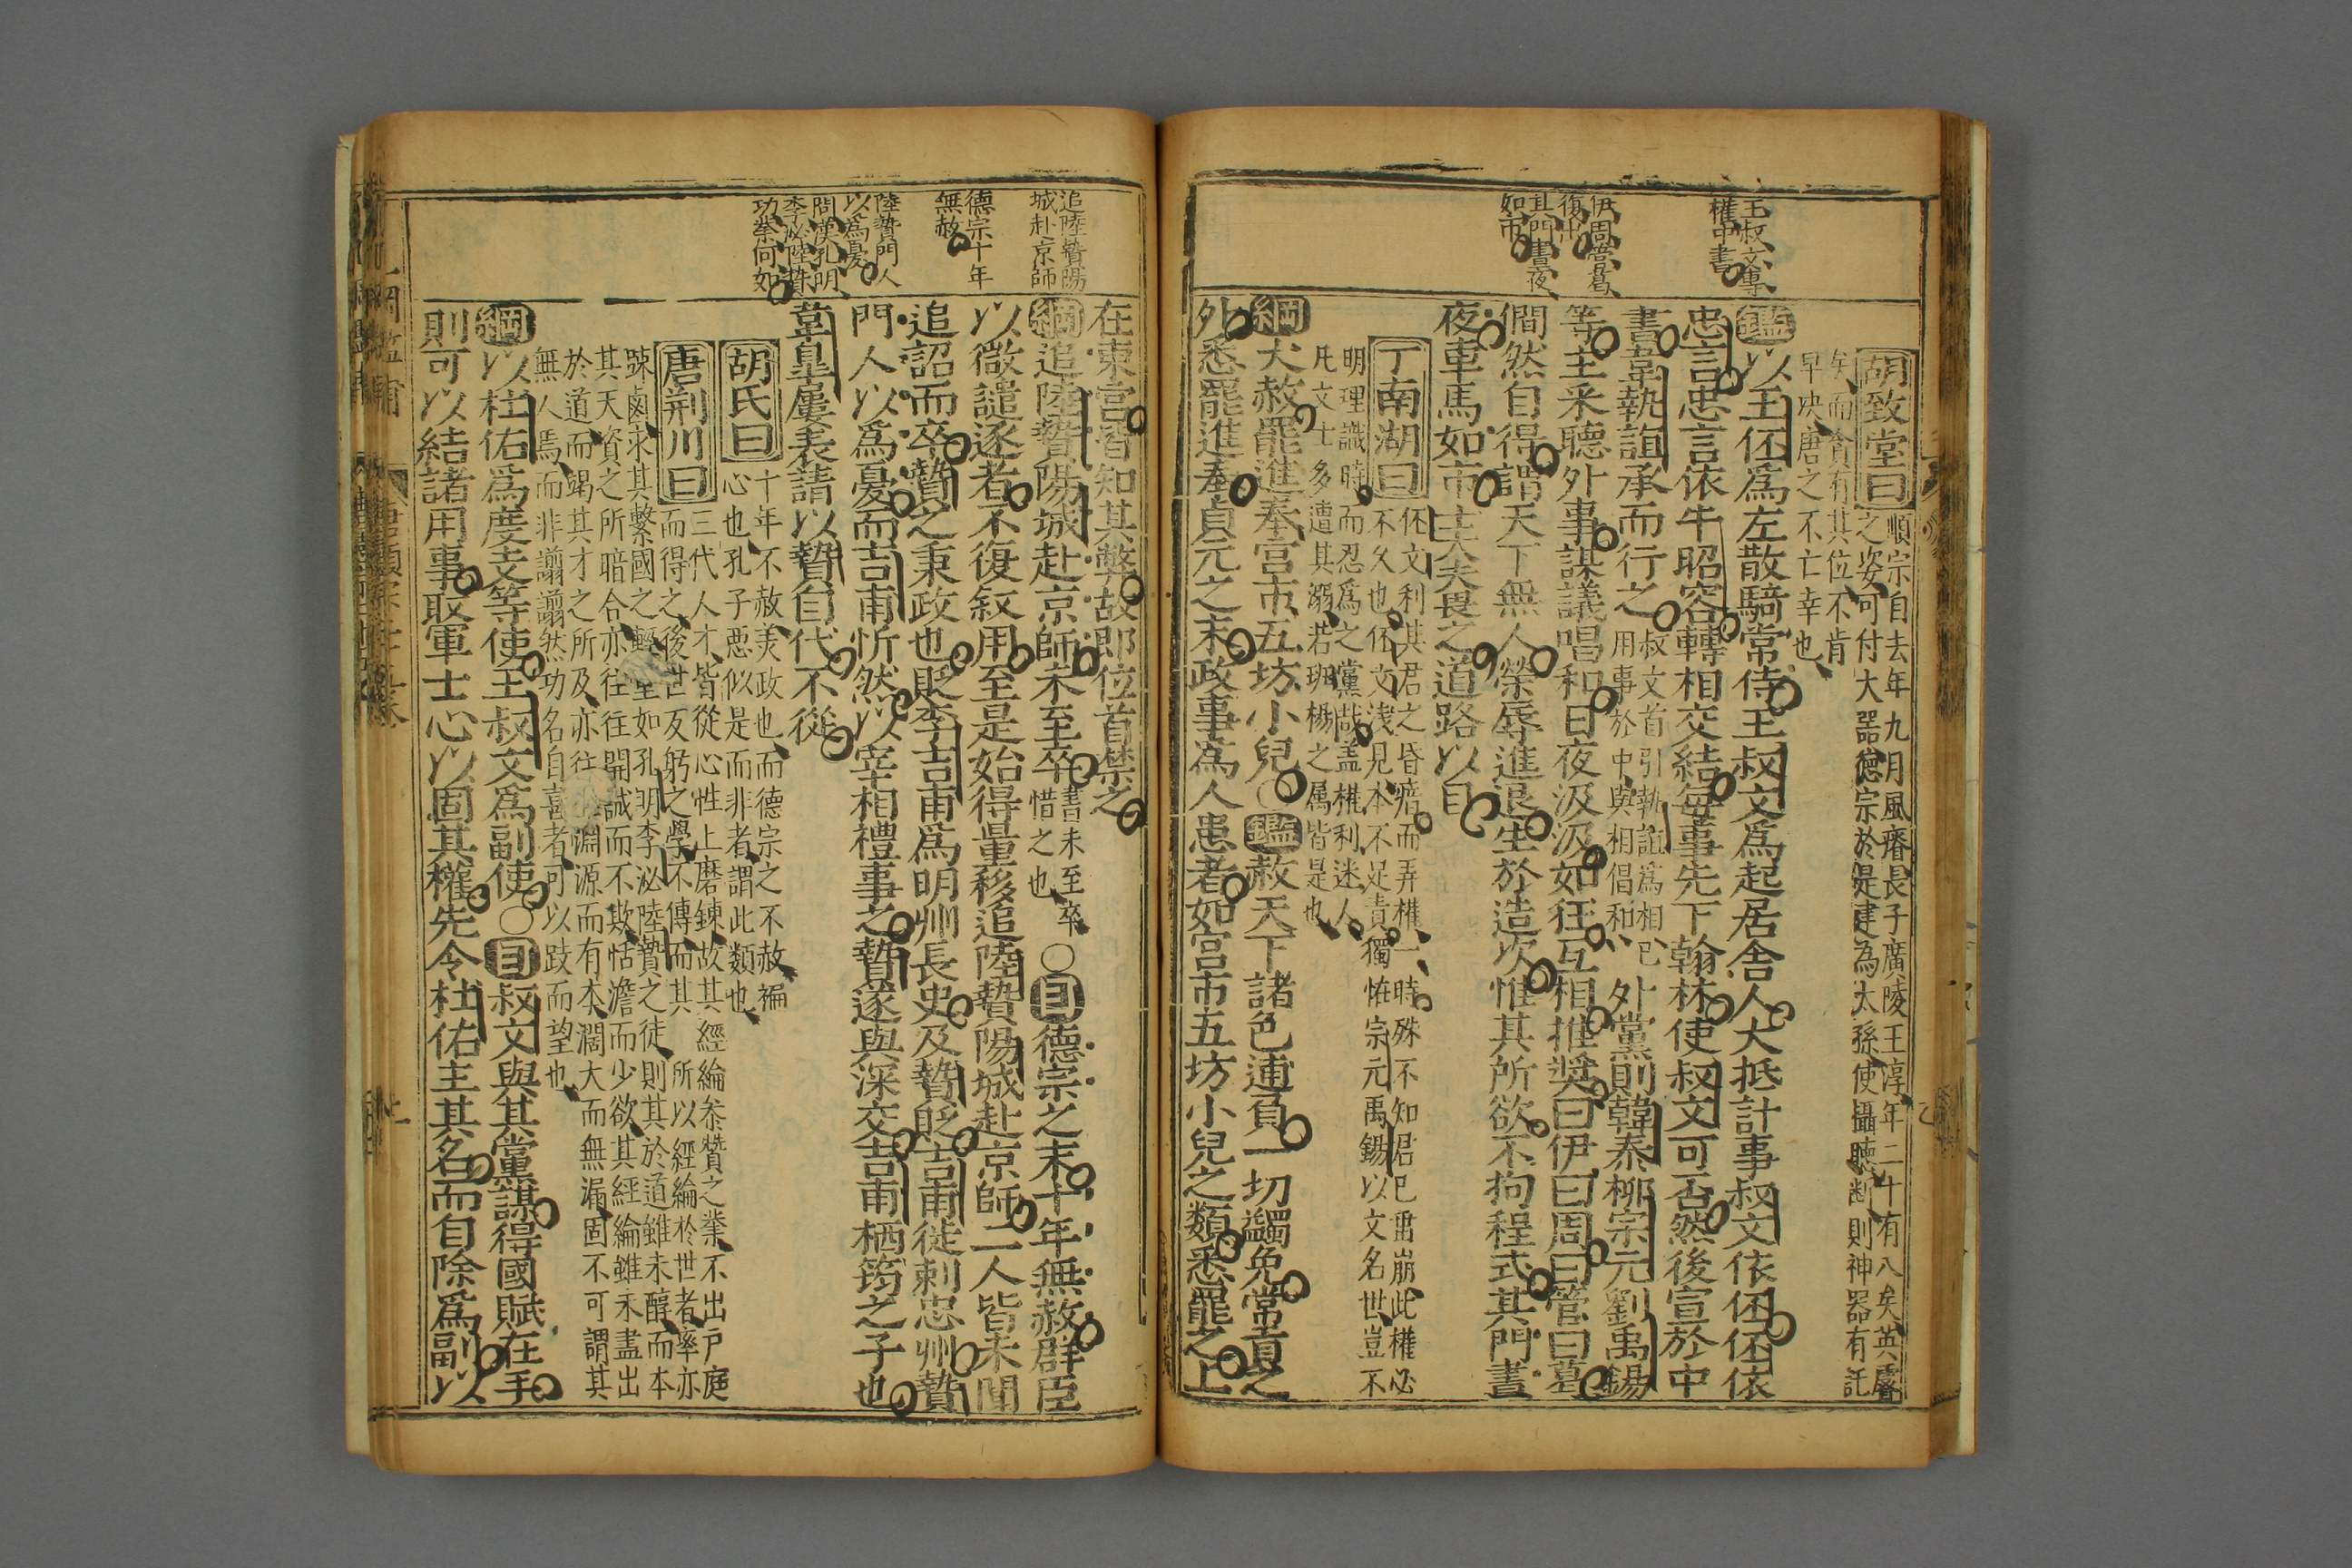 王叔文專
權中書
伊周管葛
復出
其門晝夜
如市
胡致堂曰
順宗自去年九月風瘖長子廣陵王淳年二十有八矣英睿
之姿可付大器德宗於是建為太孫使攝聽斷則神器有託
矣而貪有其位不肯
早決唐之不亡幸也
鑑以王伾爲左散騎常侍王叔文爲起居舍人大抵計事叔文依伾伾依
忠言忠言依牛昭容轉相交結每事先下翰林使叔文可否然後宣於中
書韋執誼承而行之
叔文首引執誼為相己
用事於中與相倡和
外黨則韓泰柳宗元劉禹錫
等主采聽外事謀議唱和日夜汲汲如狂互相推獎曰伊曰周曰管曰葛
僩然自得謂天下無人榮辱進退生於造次惟其所欲不拘程式其門晝
夜車馬如市士大夫畏之道路以目
丁南湖曰
伾文利其君之昏瘖而弄權一時殊不知君已當崩此權必
不久也伾文淺見本不足責獨惟宗元禹錫以文名世豈不
明理識時而忍為之黨哉盖權利迷人
凡文士多遭其溺若班楊之属皆是也
綱大赦罷進奉宮市五坊小兒○鑑赦天下諸色逋負一切蠲免常貢之
外悉罷進奉貞元之末政事爲人患者如宮市五坊小兒之類悉罷之上
追陸贄陽
城赴京師
德宗十年
無赦
陸贄門人
以為憂
問漢孔明
李泌陸贄
功業何如
在東宮皆知其弊故即位首禁之
綱追陸贄陽城赴京師未至卒
書未至卒
惜之也
○目德宗之末十年無赦群臣
以微譴逐者不復叙用至是始得量移追陸贄陽城赴京師二人皆未聞
追詔而卒贄之秉政也貶李吉甫爲明州長史及贄貶吉甫徙刺忠州贄
門人以爲憂而吉甫忻然以宰相禮事之贄遂與深交吉甫栖筠之子也
韋皐屢表請以贄自代不從
胡氏曰
十年不赦美政也而德宗之不赦褊
心也孔子惡似是而非者謂此類也
唐荆川曰
三代人才皆從心性上磨鍊故其經綸叅贊之業不出戸庭
而得之後世反躬之學不傳而其所以經綸於世者率亦
踈鹵求其繫國之輕重如孔明李泌陸贄之徒則其於道雖未醇而本
其天資之所暗合亦往往開誠而不欺恬澹而少欲其經綸雖未盡出
於道而竭其才之所及亦往淵源而有本濶大而無漏固不可謂其
無人焉而非謭謭然功名自喜者可以跂而望也
綱以杜佑爲度支等使王叔文爲副使○目叔文與其黨謀得國賦在手
則可以結諸用事取軍士心以固其權先令杜佑主其名而自除爲副以